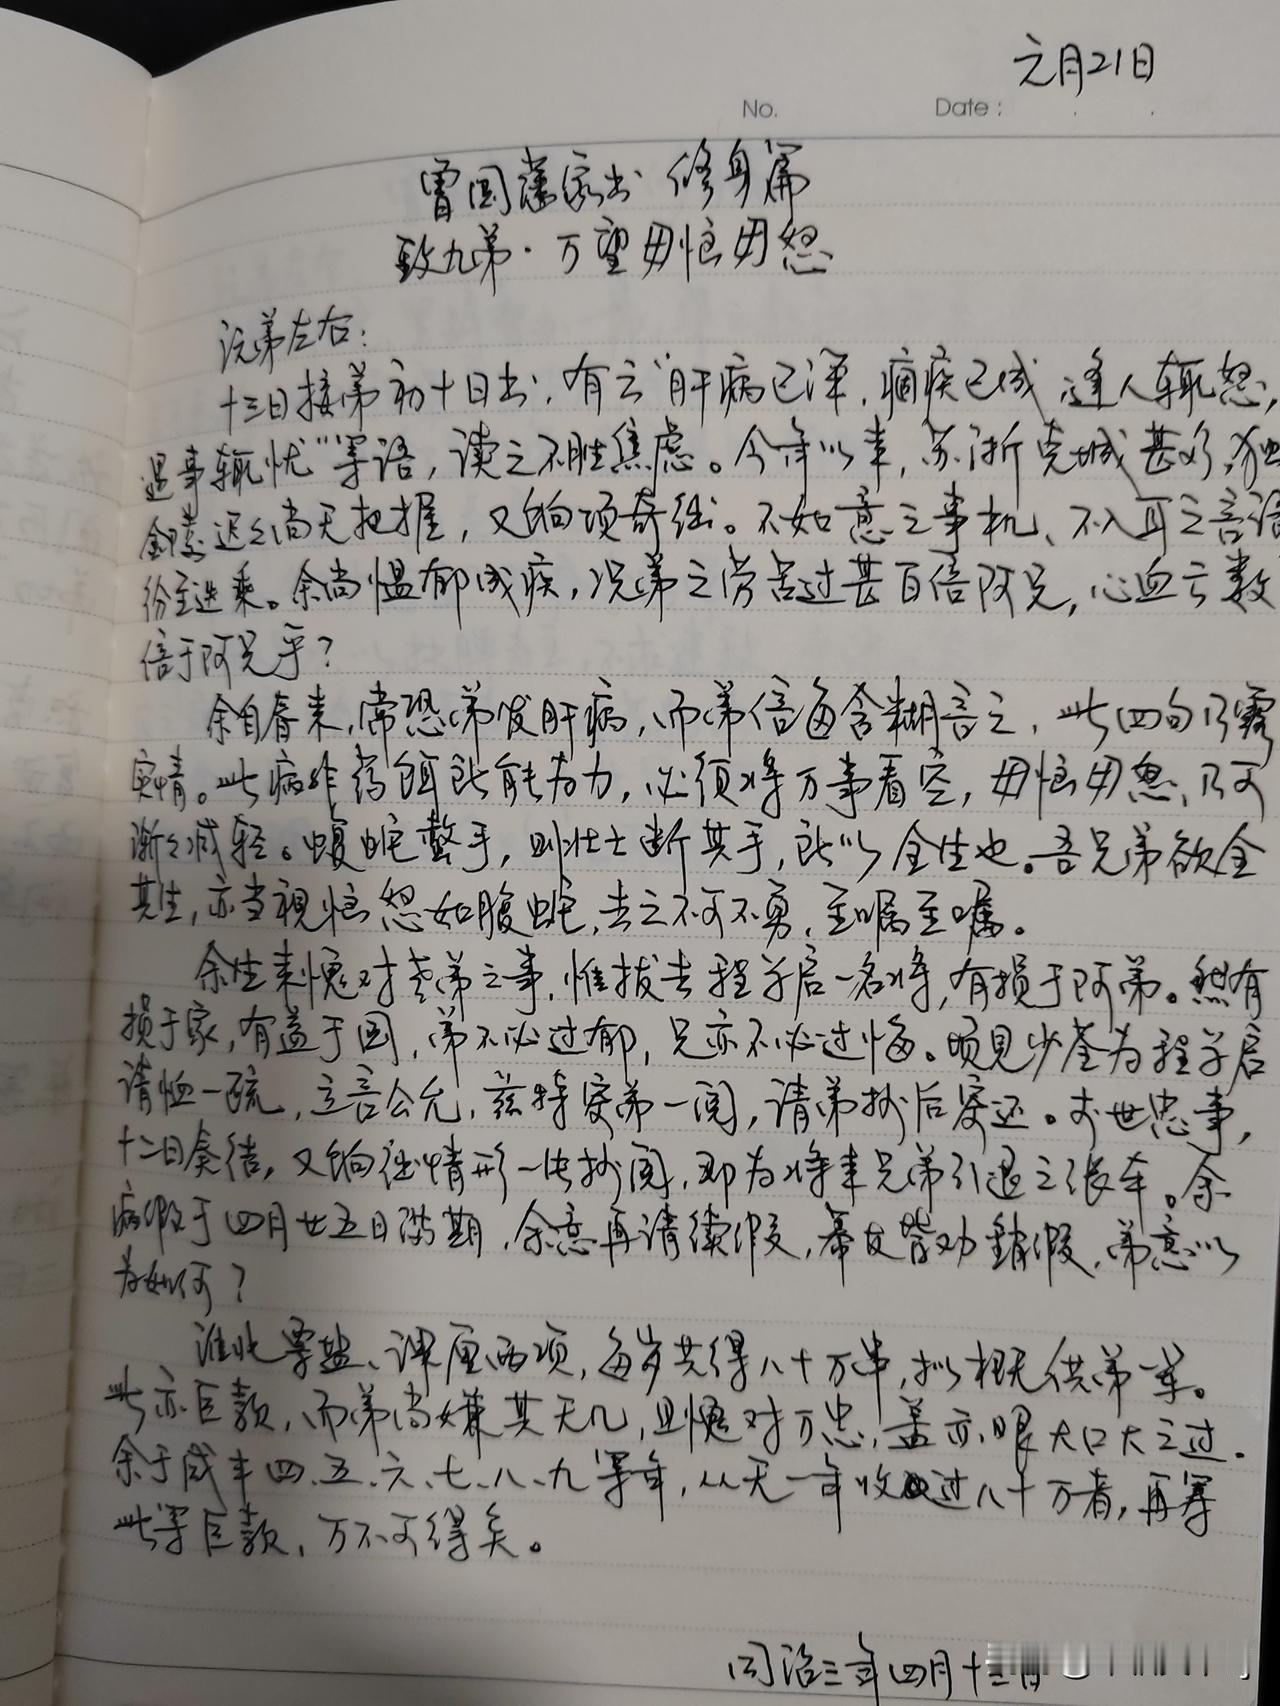 元月21日
No.
Date:
曾国藩家书 修身篇
致九弟·万望毋恼毋怒
沅弟左右:
十三日接弟初十日书,有云“肝病已深,痼疾已成,逢人辄怒,
遇事辄忧”等语,读之不胜焦虑。今年以来,苏浙克城甚多,独
金陵迟迟尚无把握,又饷项奇绌。不如意之事机、不入耳之言语
纷至迭乘。余尚愠郁成疾,况弟之劳苦过甚百倍阿兄,心血亏数
倍于阿兄乎?
余自春来,常恐弟发肝病,而弟信每含糊言之,此四句乃露
实情。此病非药饵所能为力,必须将万事看空,毋恼毋怒,乃可
渐渐减轻。蝮蛇螫手,则壮士断其手,所以全生也。吾兄弟欲全
其生,亦当视恼怒如腹蛇,去之不可不勇,至嘱至嘱。
余生来愧对老弟之事,惟拔去程学启一名将,有损于阿弟。然有
损于家,有益于国,弟不必过郁,兄亦不必过悔。顷见少荃为程学启
请恤一疏,立言公允,兹特寄弟一阅,请弟抄后寄还。李世忠事,
十二日奏结,又饷绌情形一片抄阅,即为将来兄弟引退之张本。余
病假于四月廿五日满期,余意再请续假,幕友皆劝销假,弟意以
为如何?
淮北票盐、课厘两项,每岁共得八十万串,拟概供弟一军。
此亦巨款,而弟尚嫌其无几,且愧对万忠,盖亦眼大口大之过。
余于咸丰四、五、六、七、八、九等年,从无一年收过八十万者,再筹
此等巨款,万不可得矣。
同治三年四月十三日